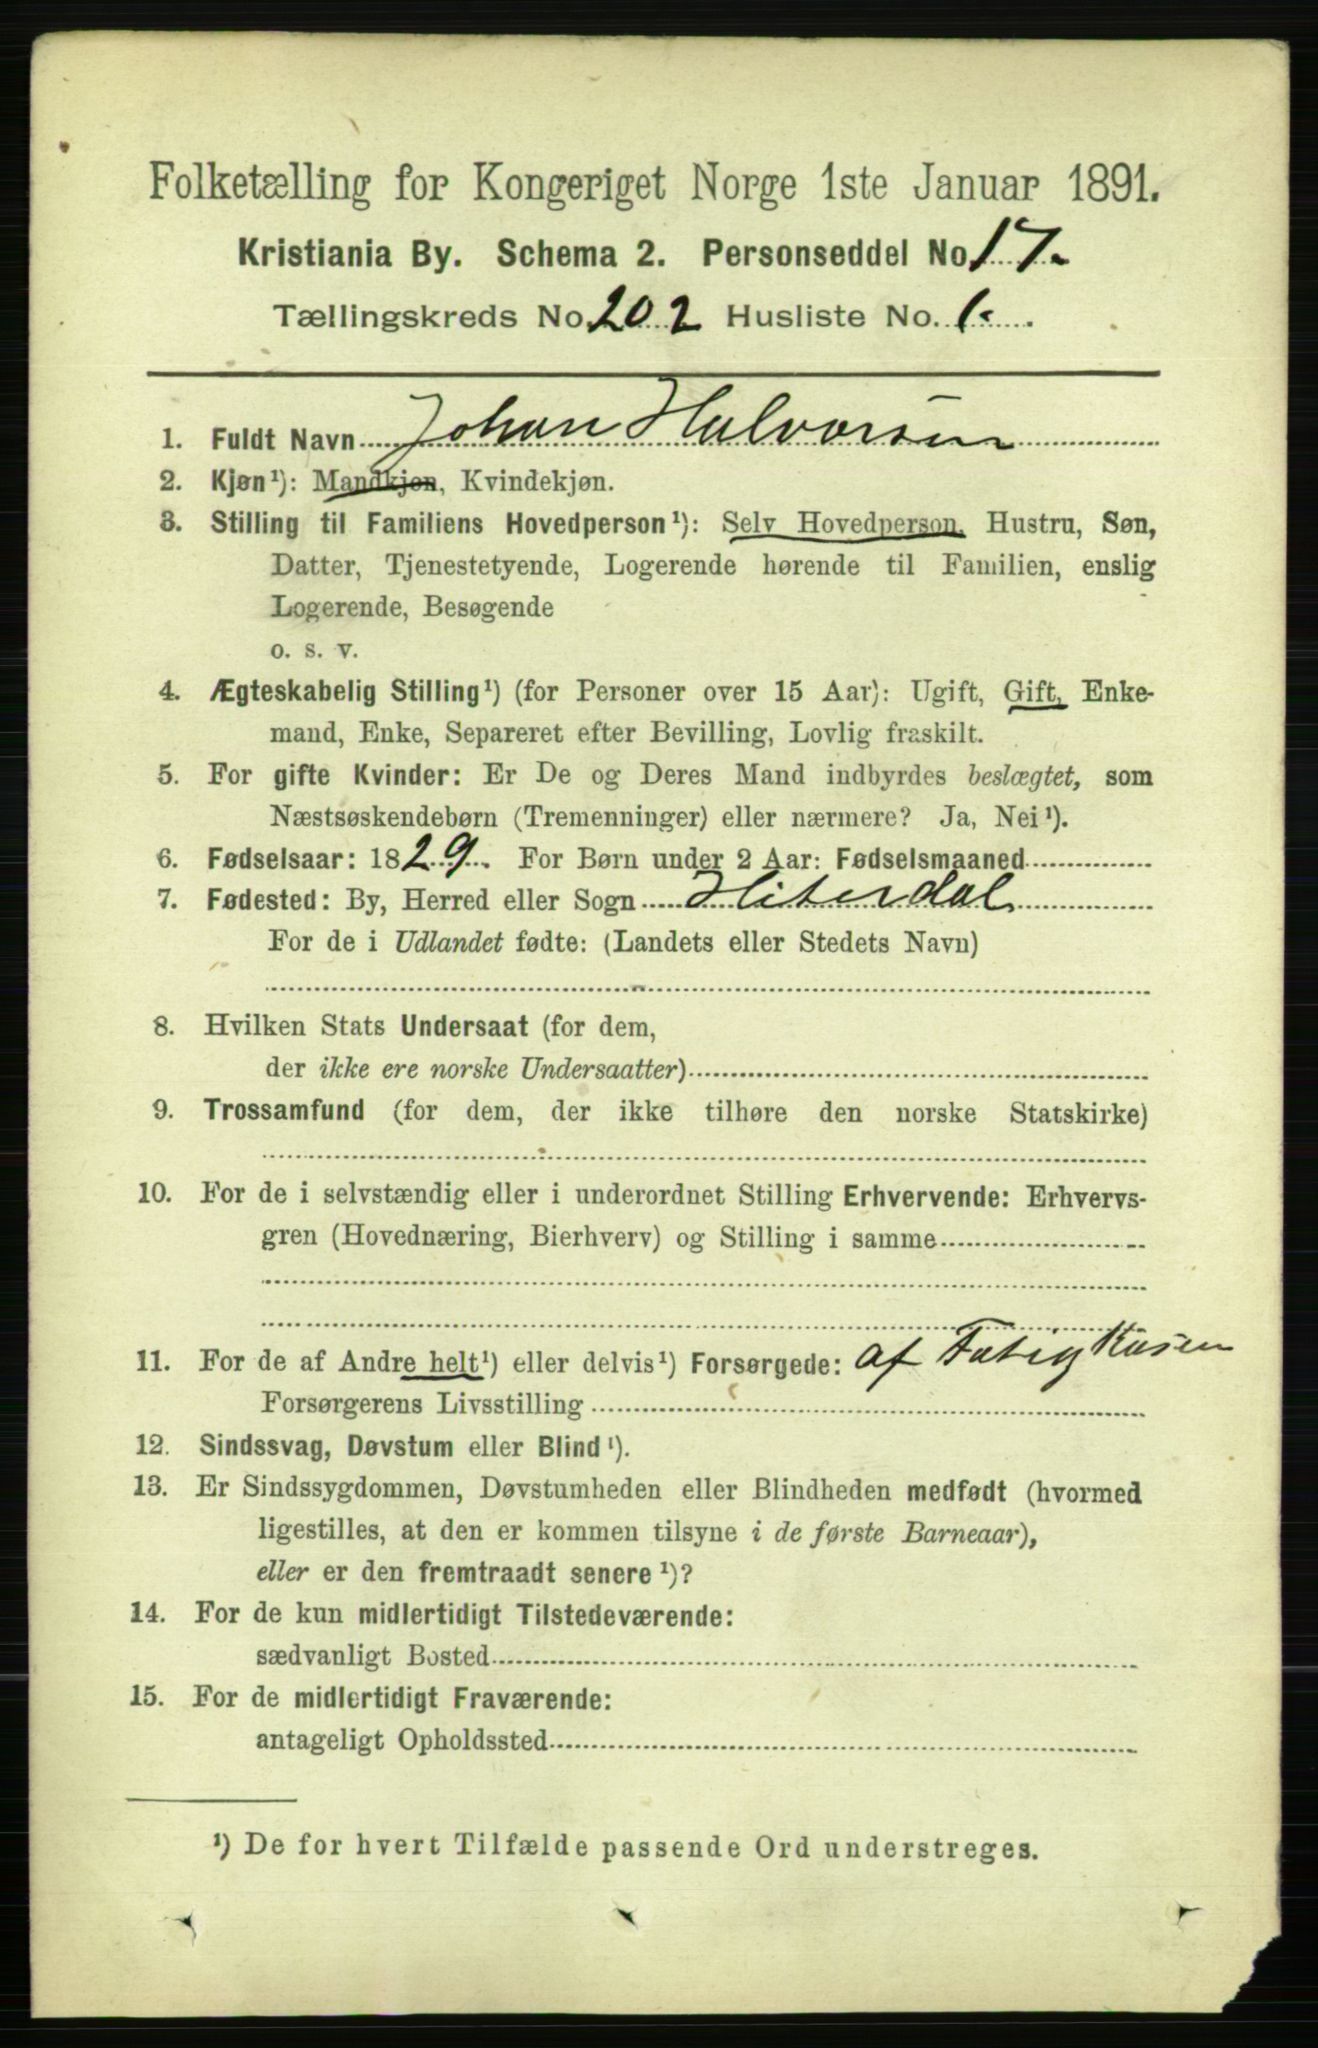 Folketælling for Kongeriget Norge 1ste Januar 1891.
Kristiania By. Schema 2. Personseddel No. 17.
Tællingskreds No. 202 Husliste No. 1.
1. Fuldt Navn Johan Halvorsen
2. Kjøn¹): Mandkjøn, Kvindekjøn.
3. Stilling til Familiens Hovedperson¹): Selv Hovedperson, Hustru, Søn,
Datter, Tjenestetyende, Logerende hørende til Familien, enslig
Logerende, Besøgende
o. s. v.
4. Ægteskabelig Stilling¹) (for Personer over 15 Aar): Ugift, Gift, Enke-
mand, Enke, Separeret efter Bevilling, Lovlig fraskilt.
5. For gifte Kvinder: Er De og Deres Mand indbyrdes beslægtet, som
Næstsøskendebørn (Tremenninger) eller nærmere? Ja, Nei¹).
6. Fødselsaar: 1829. For Børn under 2 Aar: Fødselsmaaned
7. Fødested: By, Herred eller Sogn Hiterdal
For de i Udlandet fødte: (Landets eller Stedets Navn)
8. Hvilken Stats Undersaat (for dem,
der ikke ere norske Undersaatter)
9. Trossamfund (for dem, der ikke tilhøre den norske Statskirke)
10. For de i selvstændig eller i underordnet Stilling Erhvervende: Erhvervs-
gren (Hovednæring, Bierhverv) og Stilling i samme
11. For de af Andre helt¹) eller delvis¹) Forsørgede: af Fatig Kasen
Forsørgerens Livsstilling
12. Sindssvag, Døvstum eller Blind¹).
13. Er Sindssygdommen, Døvstumheden eller Blindheden medfødt (hvormed
ligestilles, at den er kommen tilsyne i de første Barneaar),
eller er den fremtraadt senere¹)?
14. For de kun midlertidigt Tilstedeværende:
sædvanligt Bosted
15. For de midlertidigt Fraværende:
antageligt Opholdssted
¹) De for hvert Tilfælde passende Ord understreges.